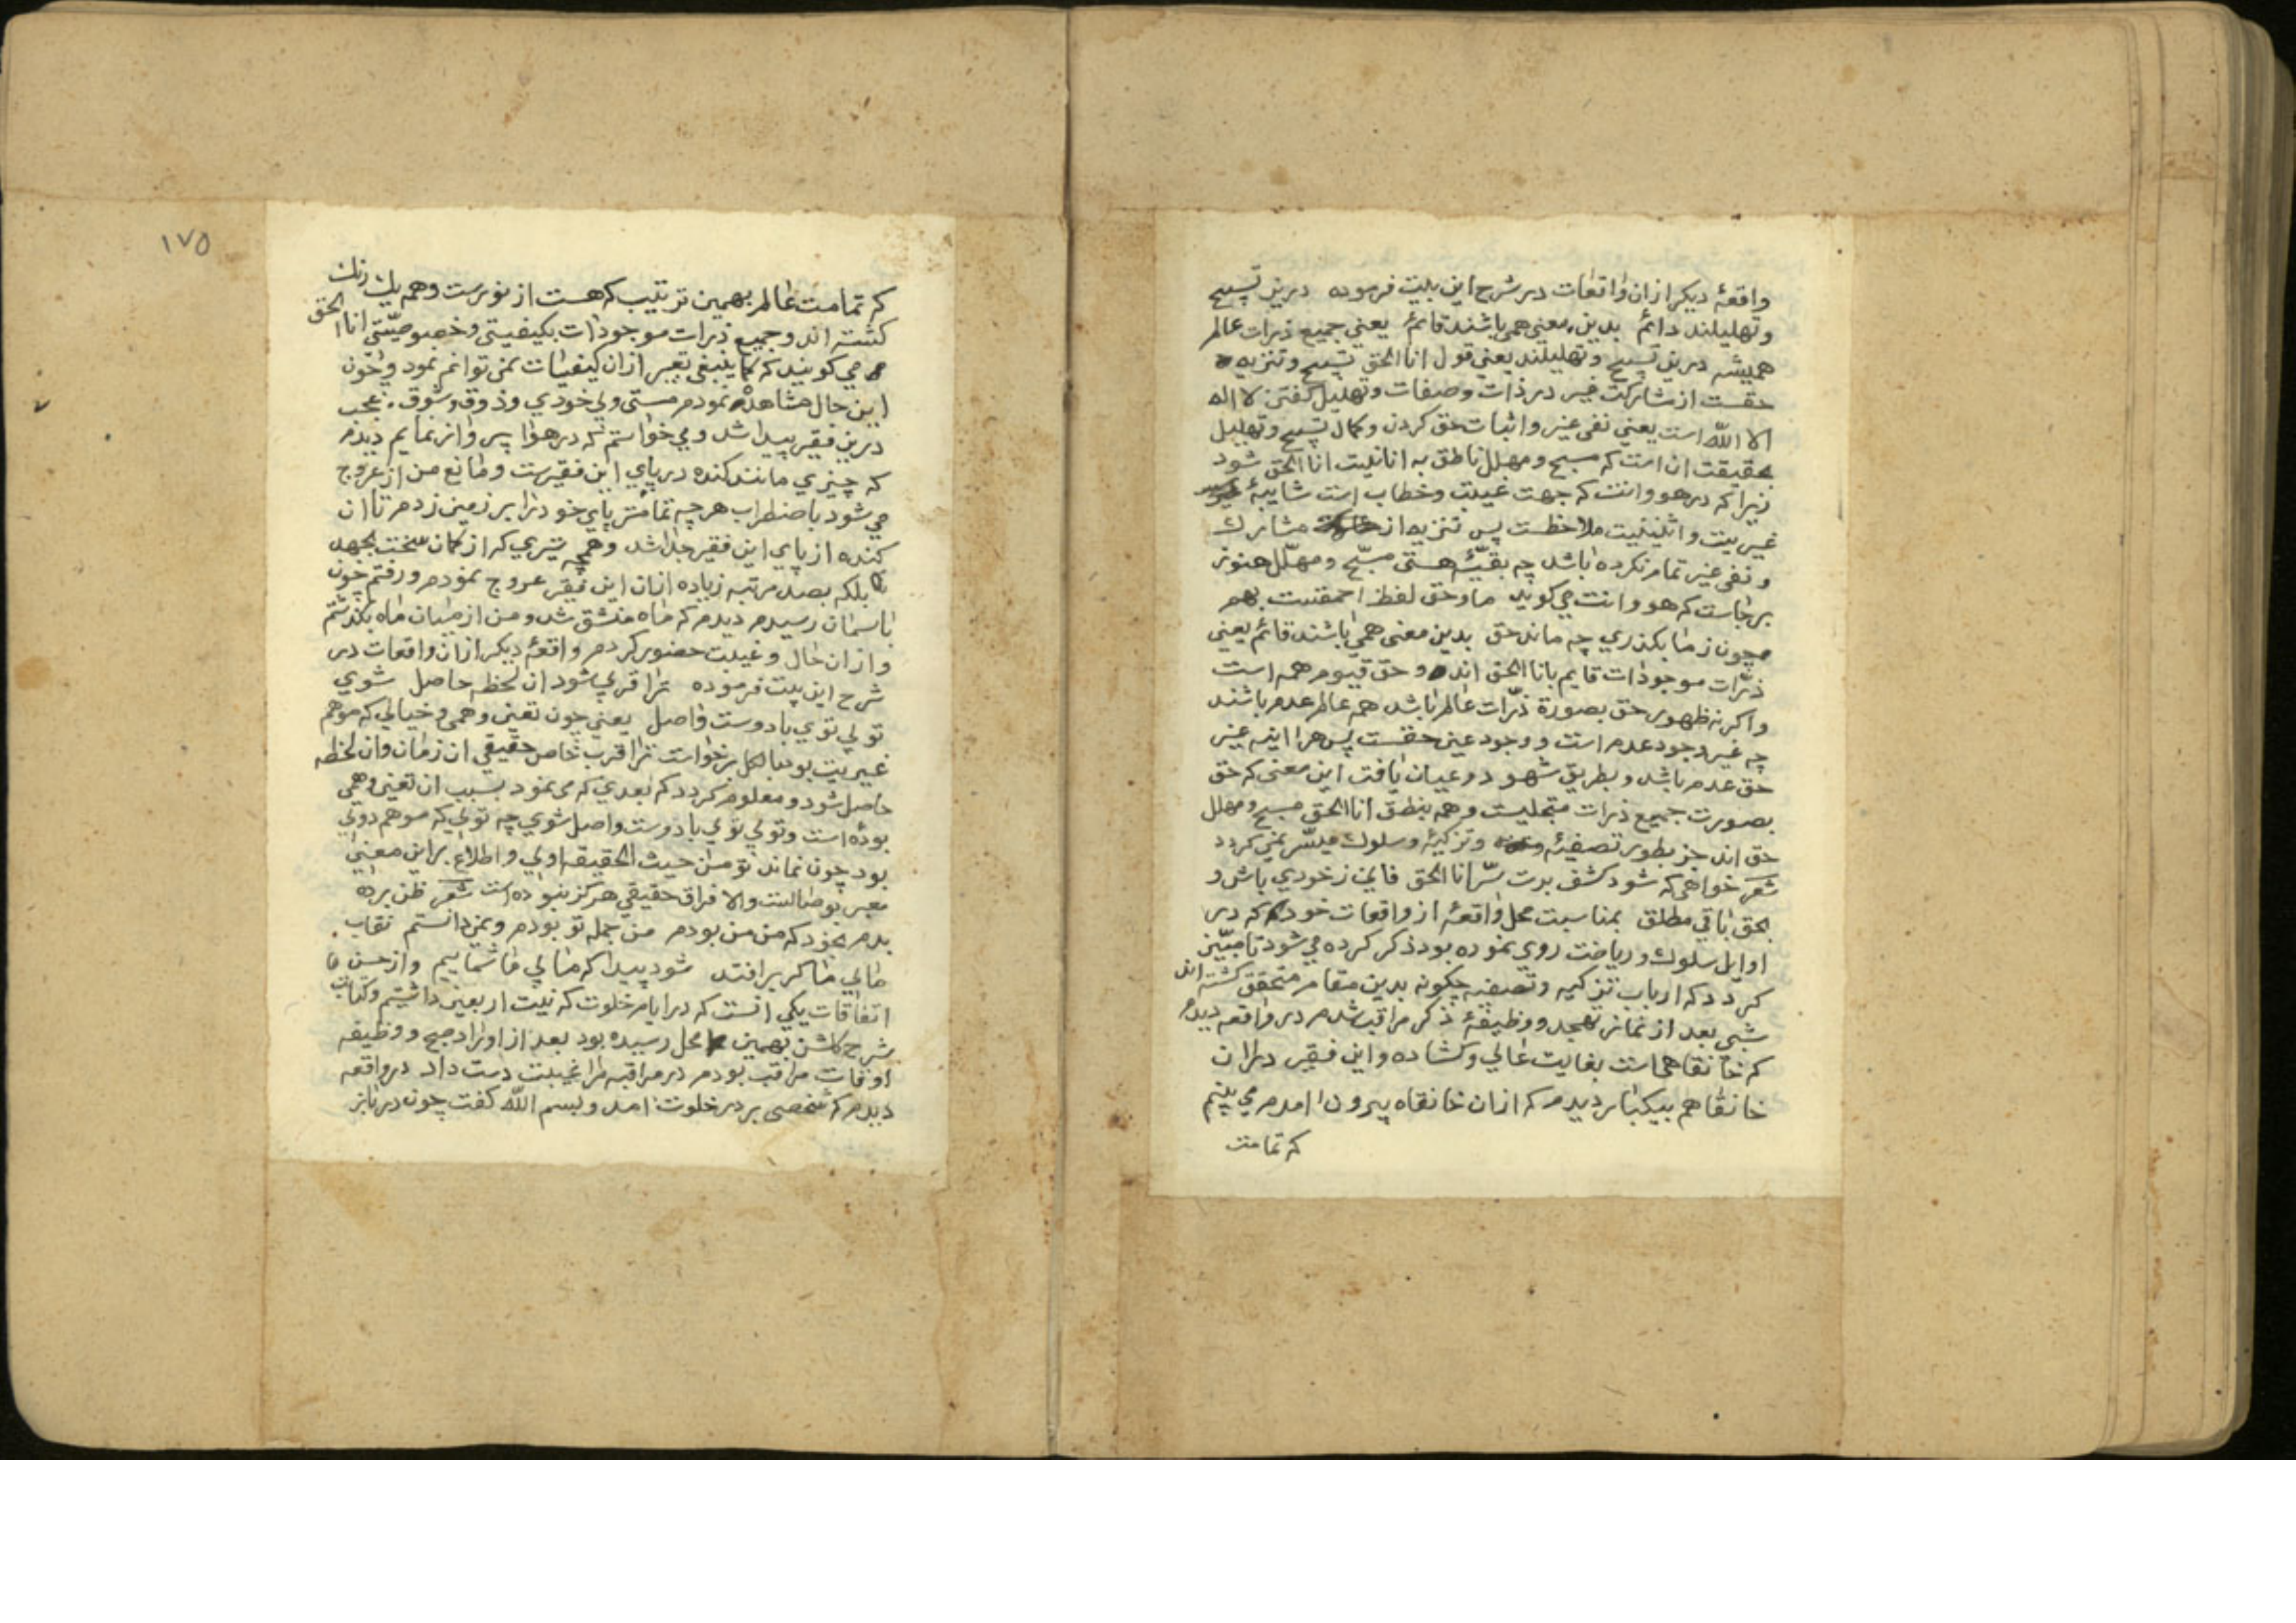 واقعهٔ دیکر ازان واقعات در شرح این بیت فرموده درین تسبیح
وتهلیلند دائم بدین معنی همی باشند قائم یعنی جمیع ذرات عالم
همیشه درین تسبیح وتهلیلند یعنی قول انا الحق تسبیح وتنزیه
حقست از مشارکت غیر در ذات وصفات وتهلیل کفتن لا اله
الا الله است یعنی نفی غیر واثبات حق کردن وکمال تسبیح وتهلیل
بحقیقت ان است که مسبح ومهلل ناطق به انانیت انا الحق شود
زیرا که در هو وانت که جهت غیبت وخطاب است شایبهٔ
غیریت واثنینیت ملاحظست پس تنزیه از مشارك
ونفی غیر تمام نکرده باشد چه بقیّهٔ هستی مسبّح ومهلّل هنوز
برجاست که هو وانت می کوید ما وحق لفظ احمقیست بهم
چون ز ما بکذری چه ماند حق بدین معنی همی باشند قائم یعنی
ذرّات موجودات قایم بانا الحق اند وحق قیوم همه است
واکر نه ظهور حق بصورة ذرّات عالم باشد همه عالم عدم باشند
چه غیر وجود عدم است ووجود عین حقست پس هر اینه غیر
حق عدم باشد وبطریق شهود وعیان یافت این معنی که حق
بصورت جمیع ذرات متجلیست وهمه بنطق انا الحق مسبح ومهلل
حق اند جز بطور تصفیهٔ وتزکیهٔ وسلوك میسّر نمی کردد
شعر خواهی که شود کشف برت سرّ انا الحق فانی ز خودی باش و
بحق باقی مطلق بمناسبت محل واقعهٔ از واقعات خود که در
اوایل سلوك وریاضت روی نموده بود ذکر کرده می شود تا مبیّن
کردد که ارباب تزکیه وتصفیه چکونه بدین مقام متحقق کشته اند
شبی بعد از نماز تهجد ووظیفهٔ ذکر مراقب شدم در واقعه دیدم
که خانقاهی است بغایت عالی وکشاده واین فقیر دران
خانقاهم بیکبار دیدم که ازان خانقاه بیرون امدم می بینم
که تمامت
١٧٥
که تمامت عالم بهمین ترتیب که هست از نورست وهمه یك رنك
کشته اند وجمیع ذرات موجودات بکیفیتی وخصوصیّتی انا الحق
می کویند که کما ینبغی تعبیر ازان کیفیات نمی توانم نمود وچون
این حال مشاهده نمودم مستی وبی خودی وذوق وشوق عجب
درین فقیر پیدا شد ومی خواستم که در هوا پرواز نمایم دیدم
که چیزی مانند کنده در پای این فقیرست ومانع من از عروج
می شود باضطراب هر چه تمامتر پای خود را بر زمین زدم تا ان
کنده از پای این فقیر جدا شد وهمچه تیری که از کمان سخت بجهد
بلکه بصد مرتبه زیاده ازان این فقیر عروج نمودم ورفتم چون
باسمان رسیدم دیدم که ماه منشق شد ومن از میان ماه بکذشتم
وازان حال وغیبت حضور کردم واقعهٔ دیکر ازان واقعات در
شرح این بیت فرموده ترا قربی شود ان لحظه حاصل شوی
تو بی توی با دوست واصل یعنی چون تعین وهمی وخیالی که موهم
غیریت بود بالکل برخواست ترا قرب خاص حقیقی ان زمان وان لحظه
حاصل شود ومعلوم کردد که بعدی که می نمود بسبب ان تعین وهمی
بوده است وتو بی توی با دوست واصل شوی چه توی که موهم دوی
بود چون نماند تو من حیث الحقیقه اوئی واطلاع براین معنی
معبر بوصالست والا فراق حقیقی هرکز نبوده است شعر ظن برده
بدم بخود که من من بودم من جمله تو بودم ونمی دانستم نقاب
مائی ما کر برافتد شود پیدا که مائی ما شماییم واز حسن
اتفاقات یکی انست که در ایام خلوت که نیت اربعین داشتیم وکتابت
شرح کلشن بهمین محل رسیده بود بعد از اوراد صبح ووظیفه
اوقات مراقب بودم در مراقبه مرا غیبت دست داد در واقعه
دیدم که شخصی بر در خلوت امد وبسم الله کفت چون در باز